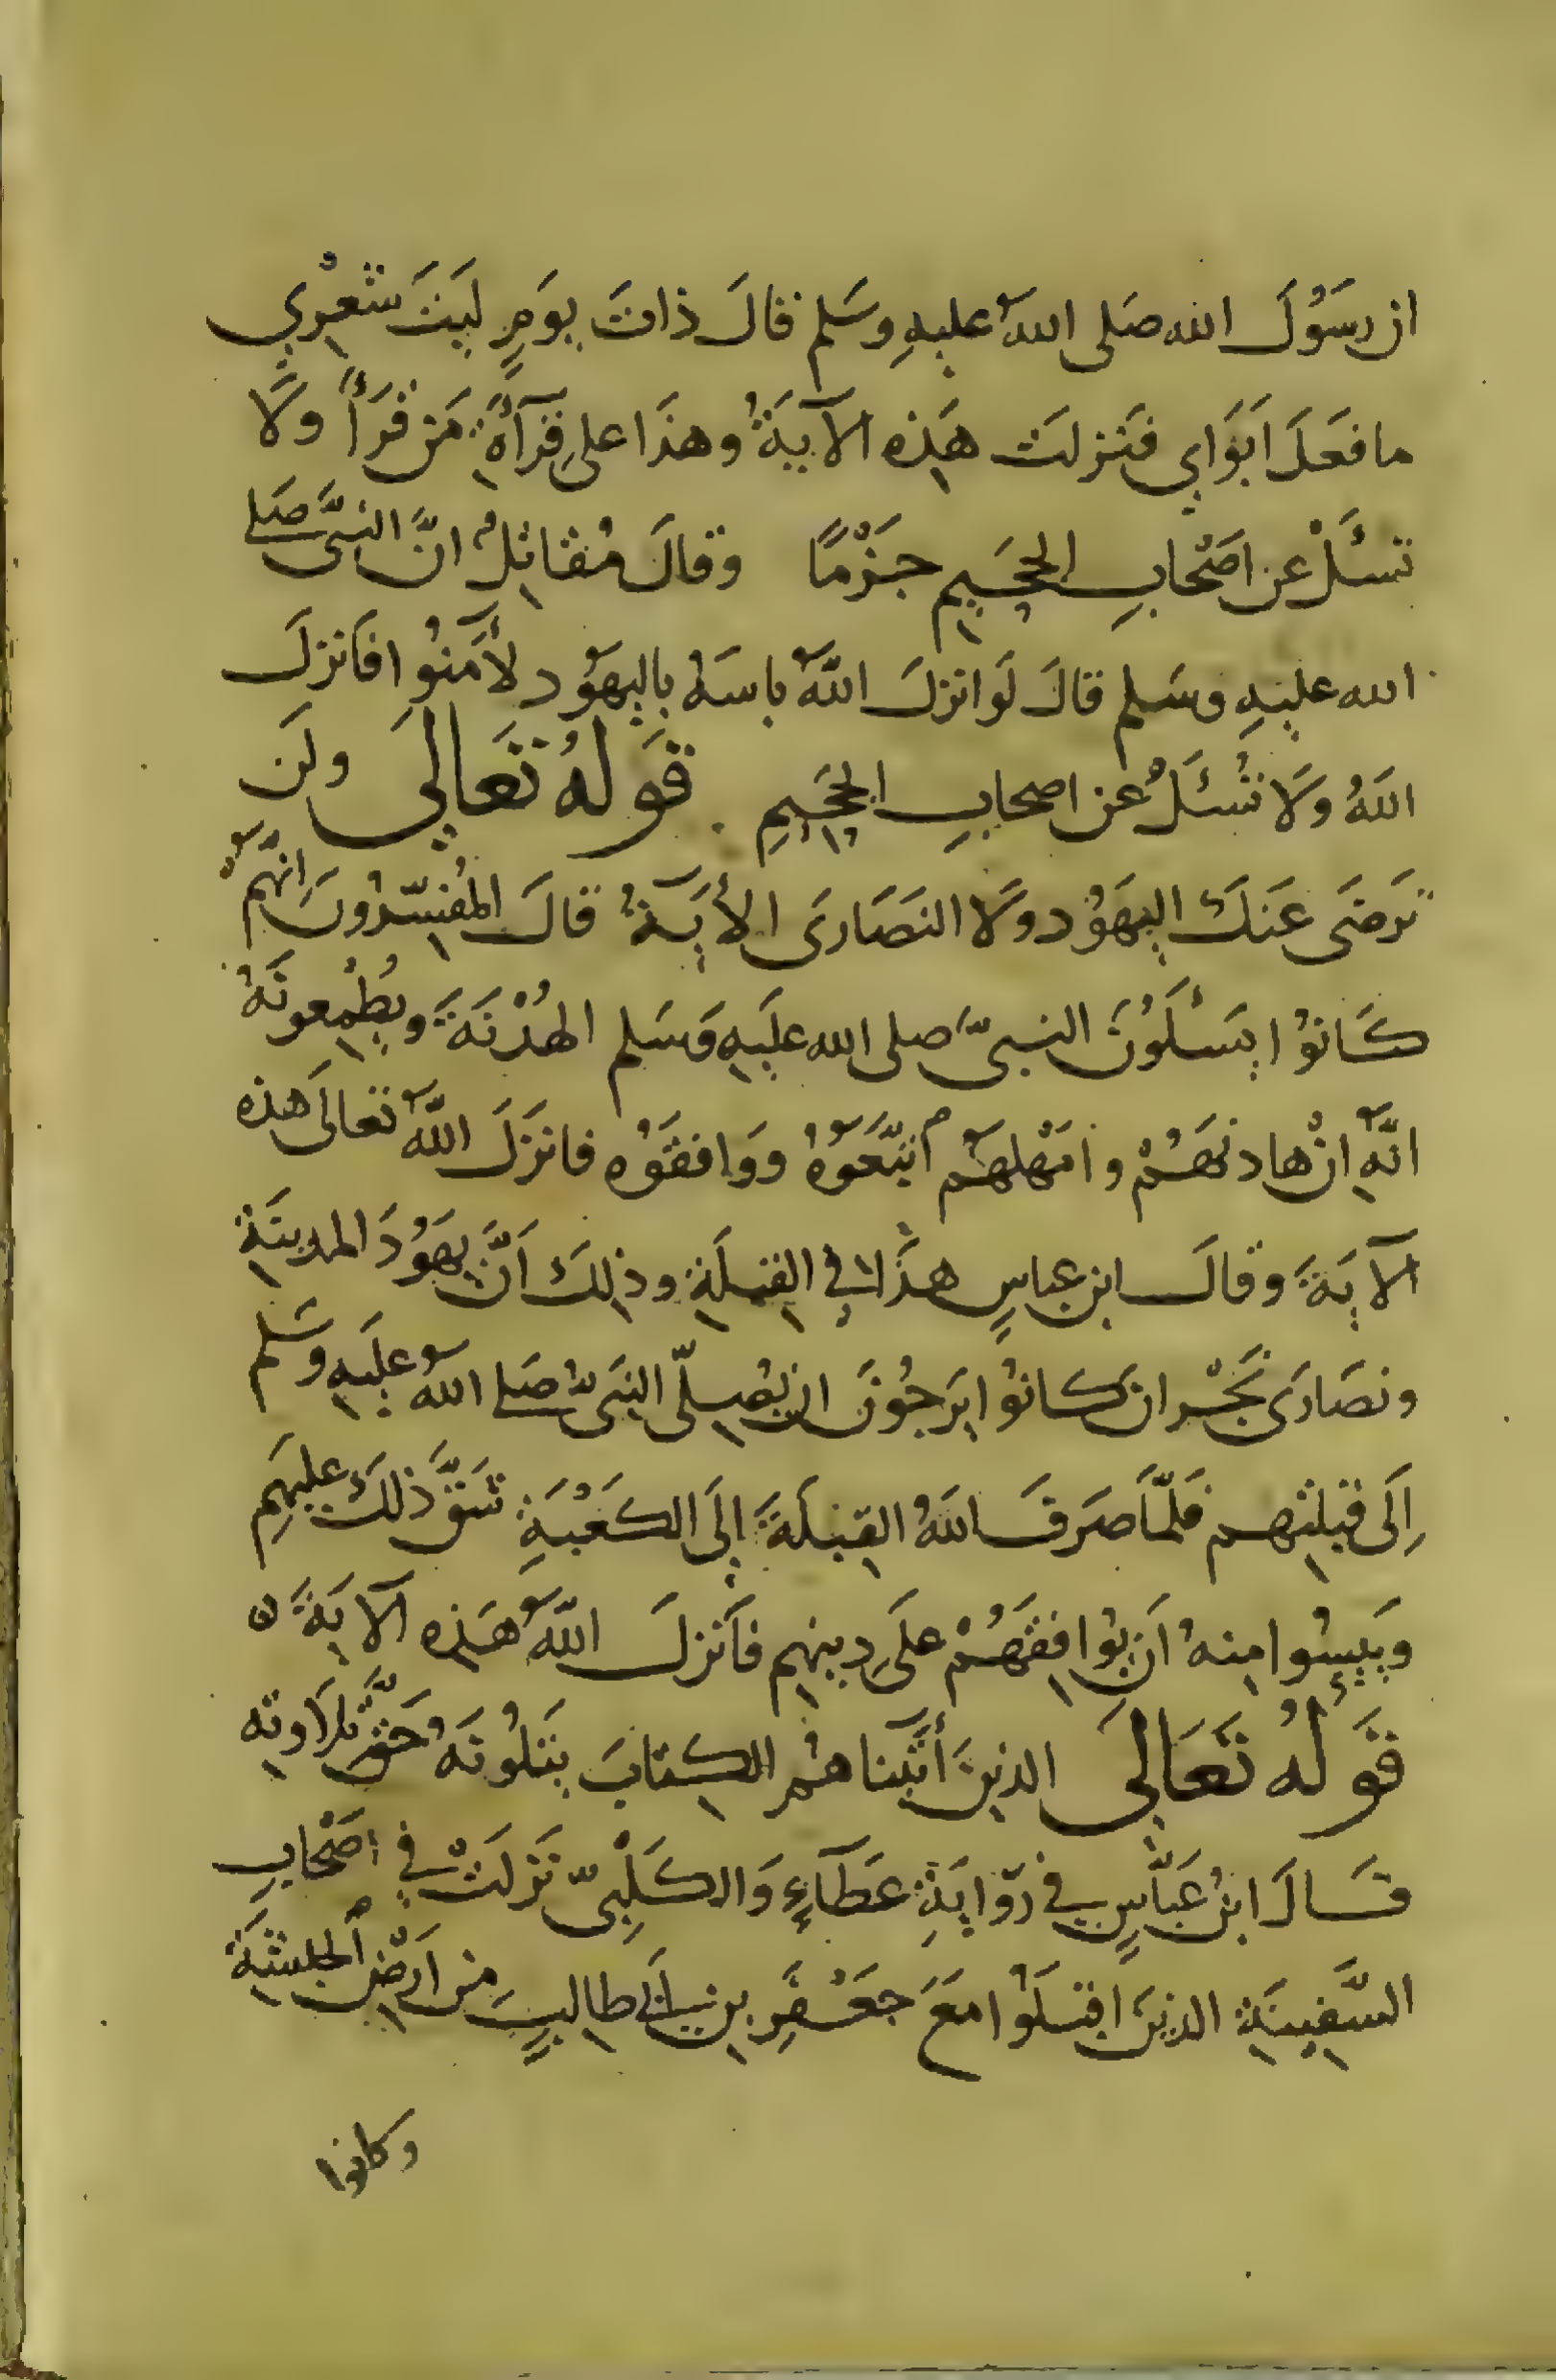 ان رَسَوُلَ الله صَلى اللهُ عليهِ وسَلم قالَ ذاتَ يوَمٍ ليَتَ شعْرِي
ما فعَلَ ابَوَاي فنَزلتَ هَذِه الآيَةُ وهذَا على قرآةِ مَن قرَأَ ولَا
تسئَلْ عن اصَحْابِ الجحَيِم جَزْمًا وقالَ مُقاتِلُ انَّ النبىَّ صَلى
الله عليهِ وسَلم قالَ لَو انزلَ اللهُ باسَهُ باليهَوُد لأمَنوُا فاَنزلَ
اللهُ ولَا تُسئَلُ عن اصحابِ الجحَيمِ قَولهُ تَعَالىَ ولَن
ترَضىَ عَنكَ اليهَوُد ولَا النصَارىَ الأيَةُ قالَ المفُسّرُونَ انهَّم
كاَنوُا يسَئلَوُنَ النبىّ صلى الله علَيهِ وَسَلم الهُدْنَةَ ويُطْمِعونَهُ
انَّهِ انْ هادنهَمُْ وامَهْلهَمُ اتبّعَوَهُ ووَافقَوُه فانزَلَ اللهُ تعالىَ هذه
الآيَةَ وقالَ ابن عباسٍ هذَا في القبلَةِ وذلِكَ اَنَّ يهَوُدَ المدينَةِ
ونصَارَى نجَرْان كانوُا يَرجُونَ ان يُصِلّى النبَىُّ صَلى اللهُ علَيهِ وسَلم
اِلَى قبلتِهم فلَمّاَ صَرفَ اللهُ القِبلَةَ اِلىَ الكَعْبَةِ شَقَّ ذلكَ عليهَمِ
وَيَيِسُوا مِنهُ اَن يُوافِقهَمُْ علىَ دِينِهم فاَنزلَ اللهُ هَذِه الآيَةَ ه
قَولُهُ تَعَالىَ الذينَ أتَيناهُمُ الكِتابَ يَتلُونَهُ حَقَّ تِلَاوتِه
قَالَ ابنُ عَبَّاسٍ في رِوّايَةِ عَطَآءٍ وَالكَلْبِىّ نَزلَتْ في اصَحْابِ
السَّفِينَةِ الذينَ اقبَلَوُا معَ جَعَفَرِ بنِ أبي طالِبٍ مِن اَرْضِ الحَبشَةِ
وكانوا